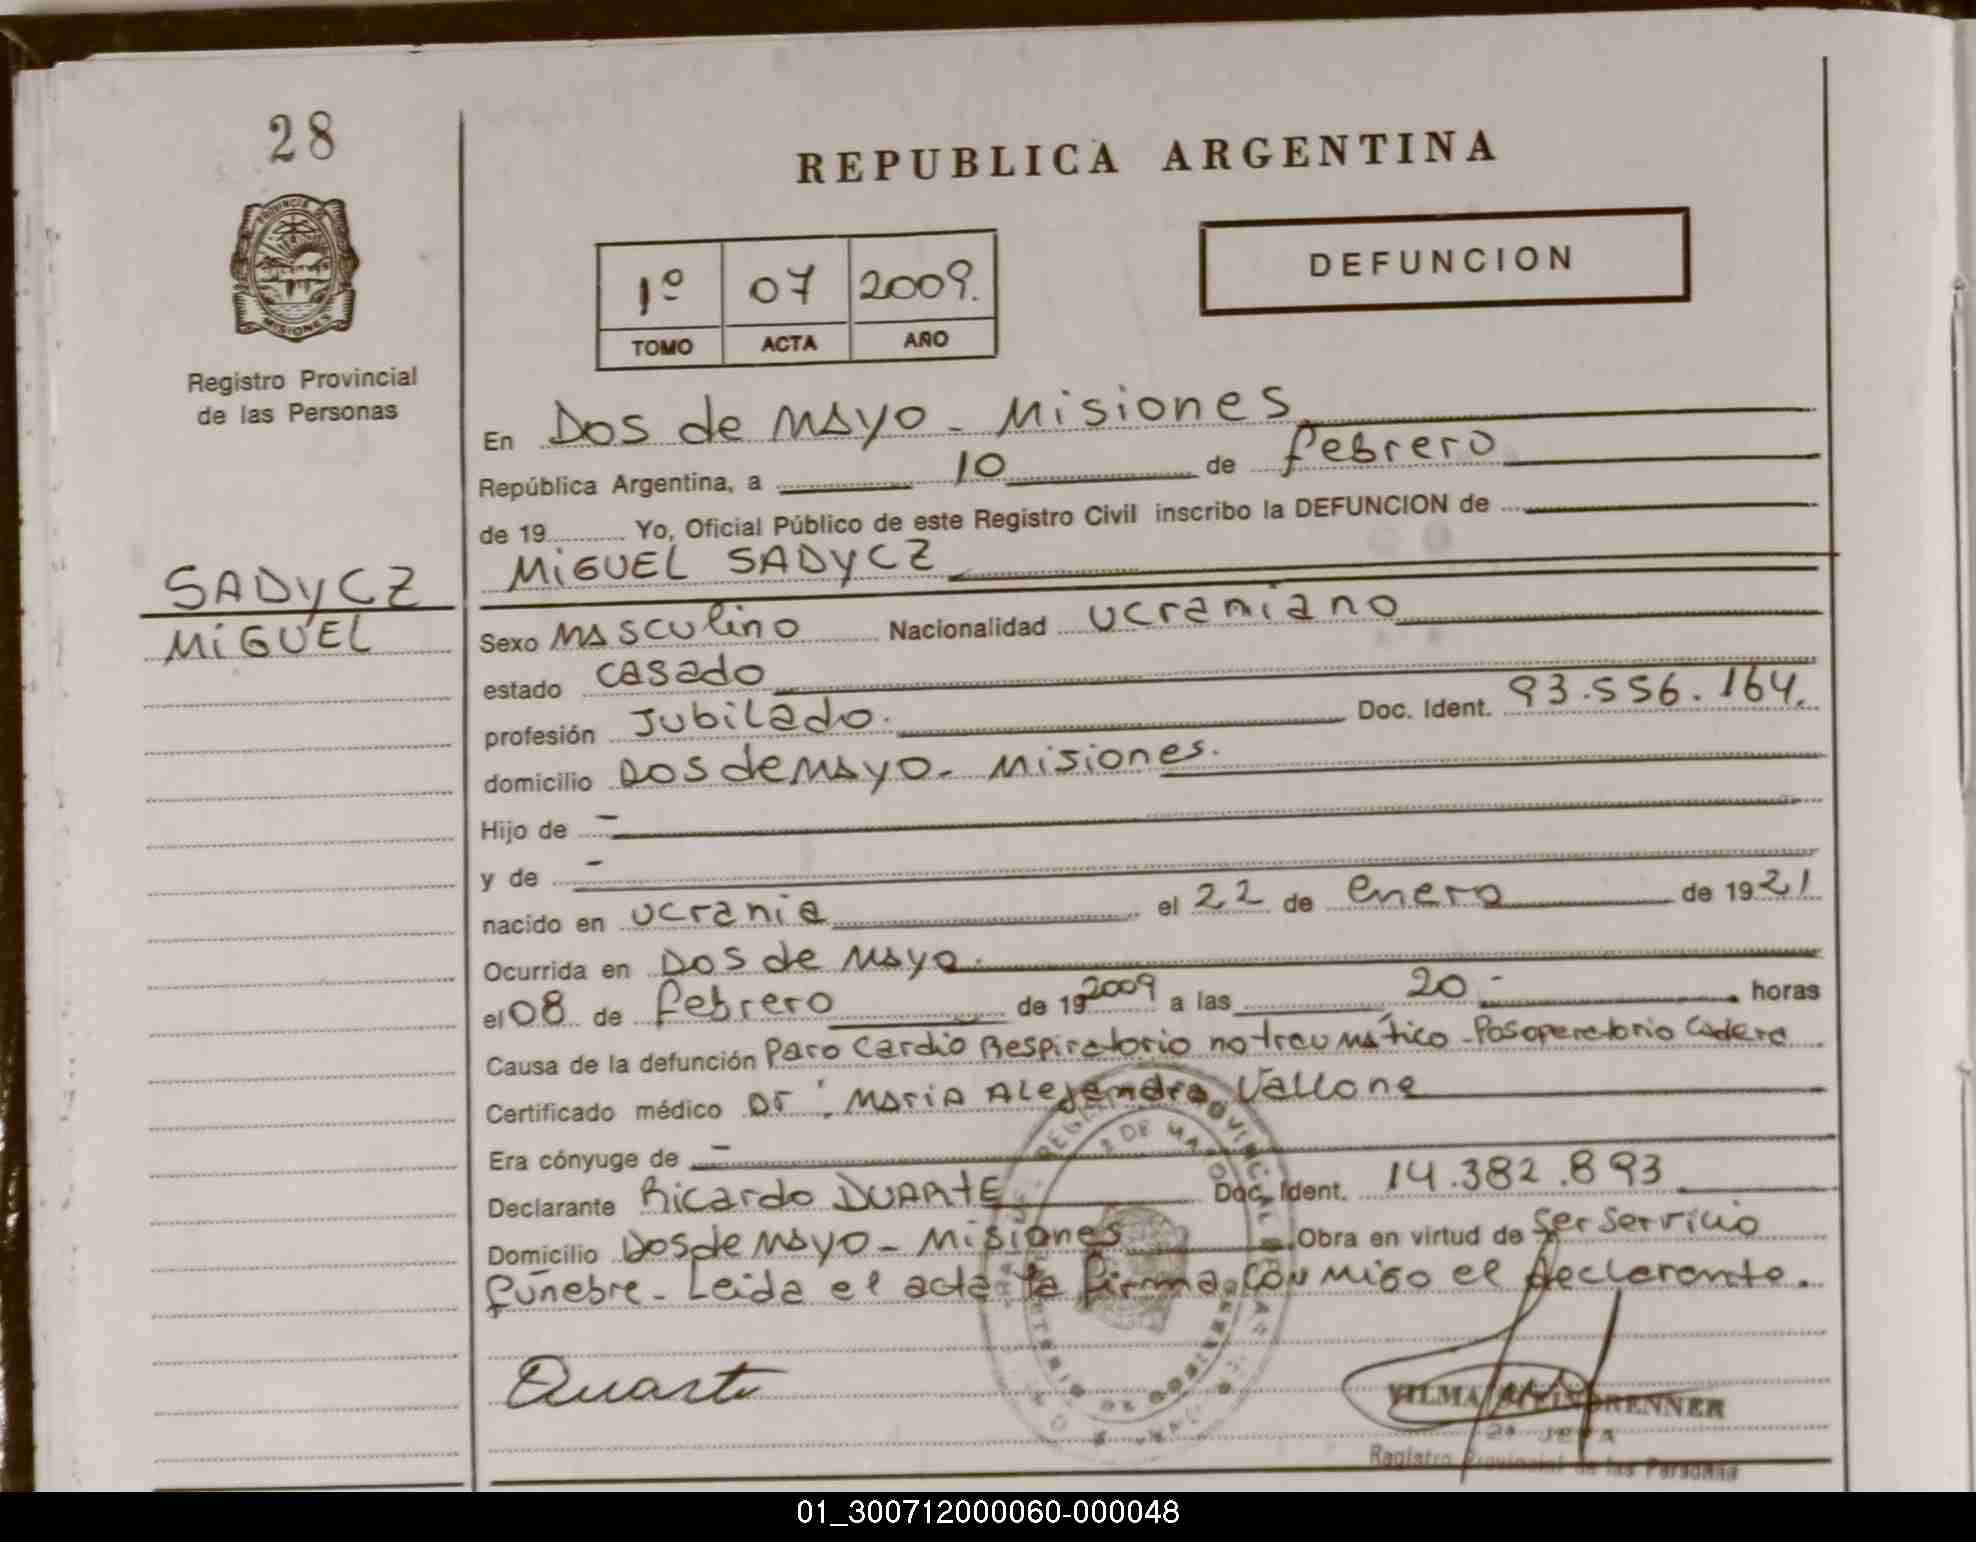 28
REPUBLICA ARGENTINA
PROVINCIA DE
MISIONES
Registro Provincial
de las Personas
1º 07 2009.
TOMO ACTA AÑO
DEFUNCION
En Dos de Mayo - Misiones
República Argentina, a 10 de febrero
de 19 Yo, Oficial Público de este Registro Civil inscribo la DEFUNCION de
MIGUEL SADYCZ
SADYCZ
MIGUEL
Sexo Masculino Nacionalidad ucraniano
estado casado
profesión Jubilado. Doc. Ident. 93.556.164.
domicilio Dos de Mayo - Misiones.
Hijo de -
y de -
nacido en ucrania el 22 de enero de 1921
Ocurrida en Dos de Mayo.
el 08 de febrero de 19 2009 a las 20 - horas
Causa de la defunción Paro Cardio Respiratorio no traumático - Posoperatorio Cadera
Certificado médico Dr. Maria Alejandra Vallone
Era cónyuge de -
Declarante Ricardo DUARTE Doc. Ident. 14.382.893
Domicilio Dos de Mayo - Misiones Obra en virtud de ser servicio
fúnebre - Leida el acta la firma con migo el declarante.
Duarte
VILMA STEINBRENNER
JEFA
Registro Provincial de las Personas
01_300712000060-000048